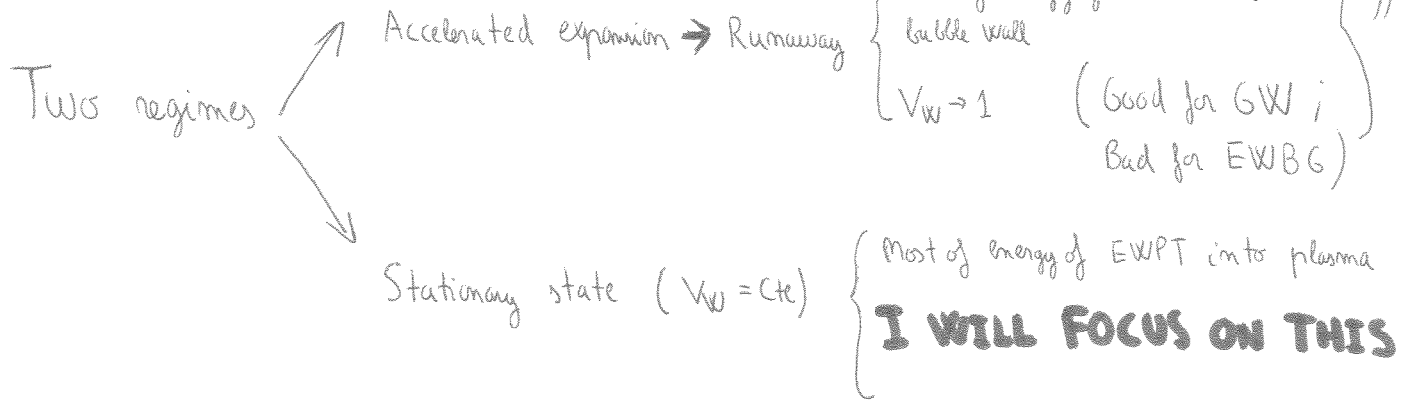 Accelerated expansion → Runaway
bubble wall
Two regimes
V_W → 1
(Good for GW ;
Bad for EWBG)
Stationary state (V_W = Cte)
Most of energy of EWPT into plasma
I WILL FOCUS ON THIS